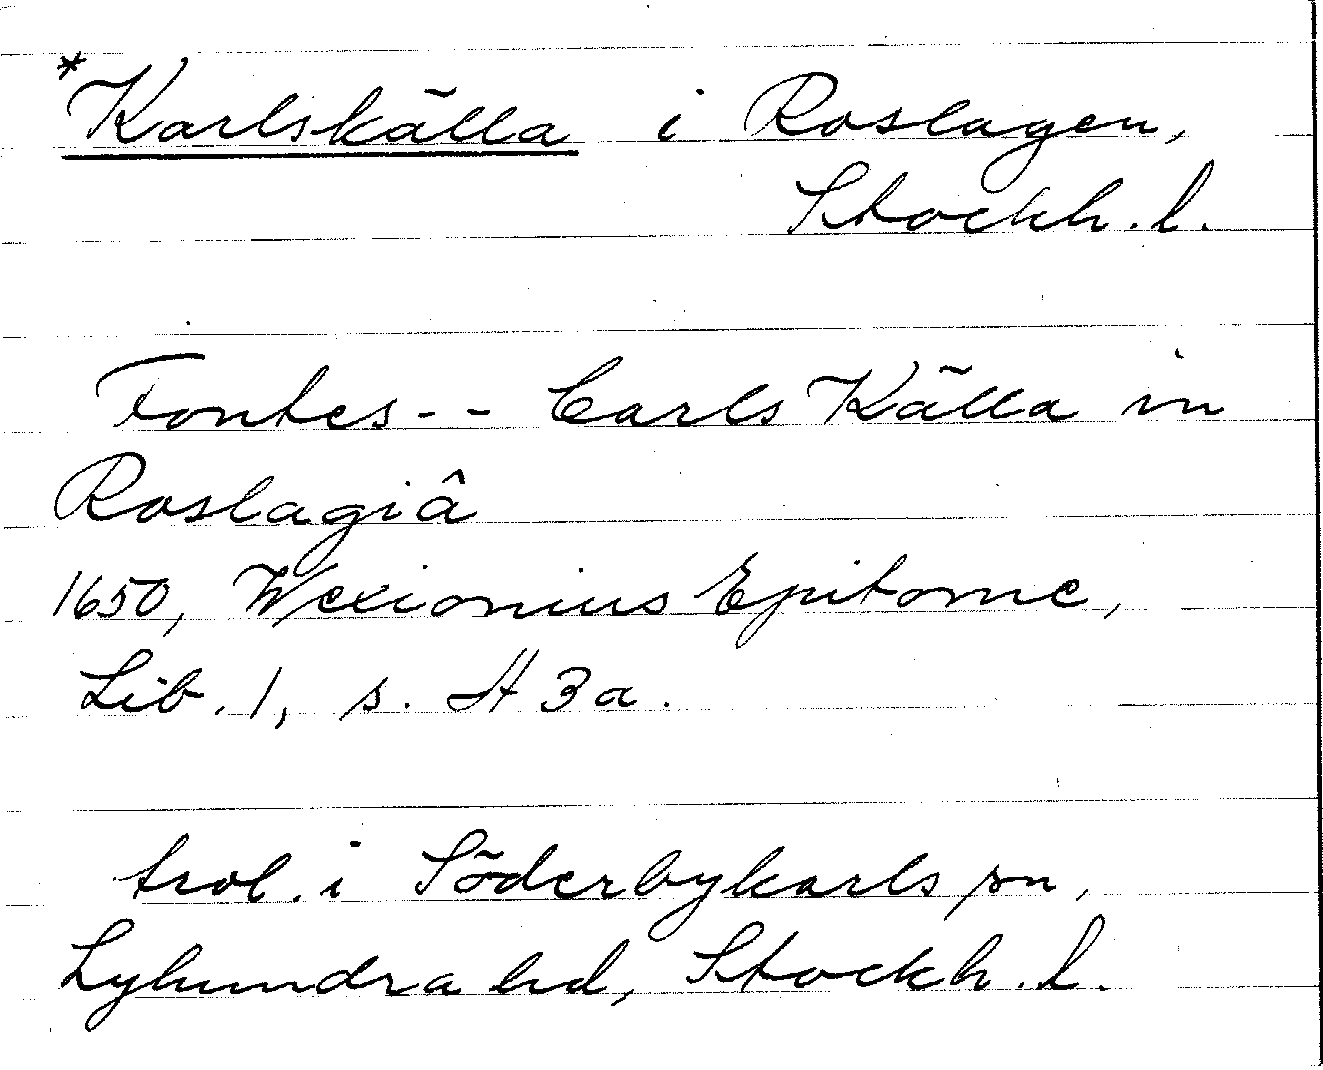 *Karlskälla i Roslagen,
Stockh. l.
Fontes-- Carls Källa in
Roslagiâ
1650, Wexionius Epitome,
Lib. 1, s. H 3a.
trol. i Söderbykarls sn,
Lyhundra hd, Stockh. l.